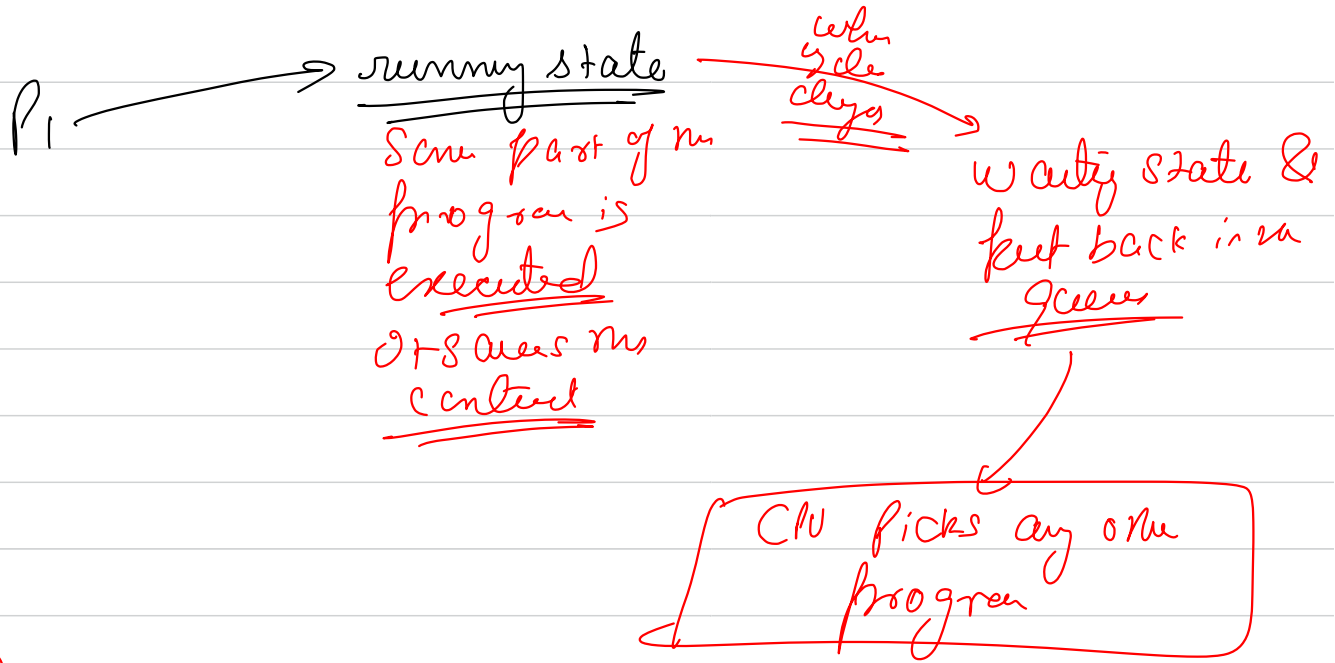 P1
running state
when
state
changes
Some part of the
program is
executed
OS saves the
context
waiting state &
put back in the
queue
CPU Picks any other
program